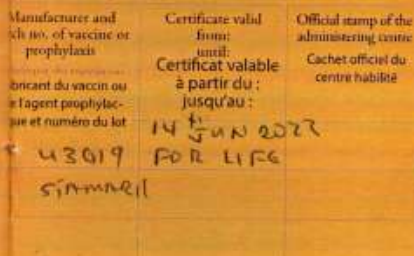 Manufacturer and
ch no. of vaccine or
prophylaxis
bricant du vaccin ou
e l'agent prophylac-
que et numéro du lot
Certificate valid
from:
until:
Certificat valable
à partir du :
jusqu'au :
Official stamp of the
administering centre
Cachet officiel du
centre habilité
14 th JUN 2022
43919 FOR LIFE
STAMARIL